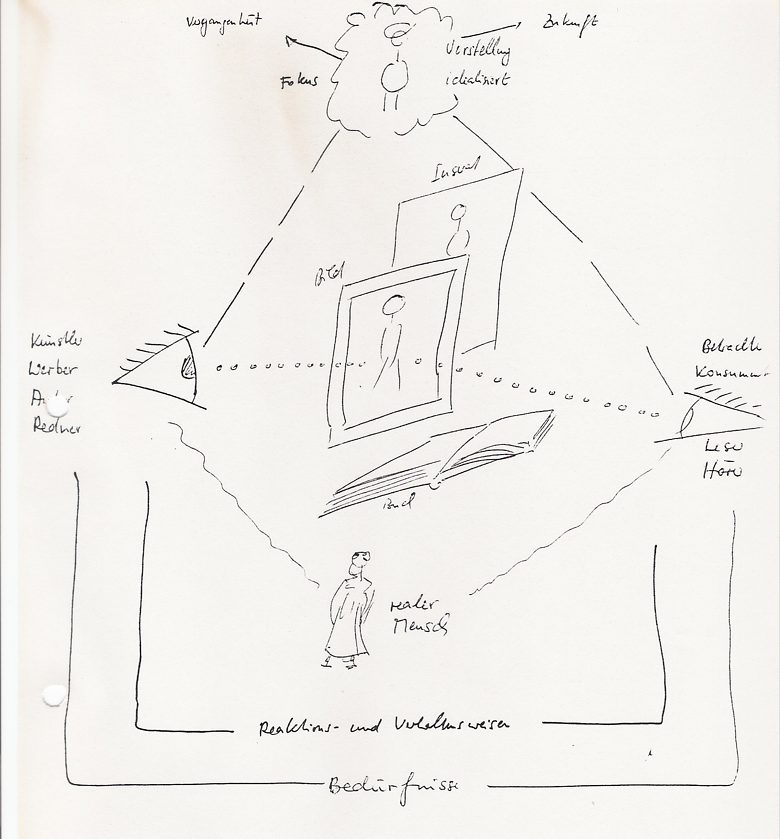 Vergangenheit
Zukunft
Fokus
Vorstellung
idealisiert
Inserat
Bild
Künstler
Werber
Redner
Betrachter
Konsument
Leser
Hörer
Buch
realer
Mensch
Reaktions- und Verhaltensweisen
Bedürfnisse